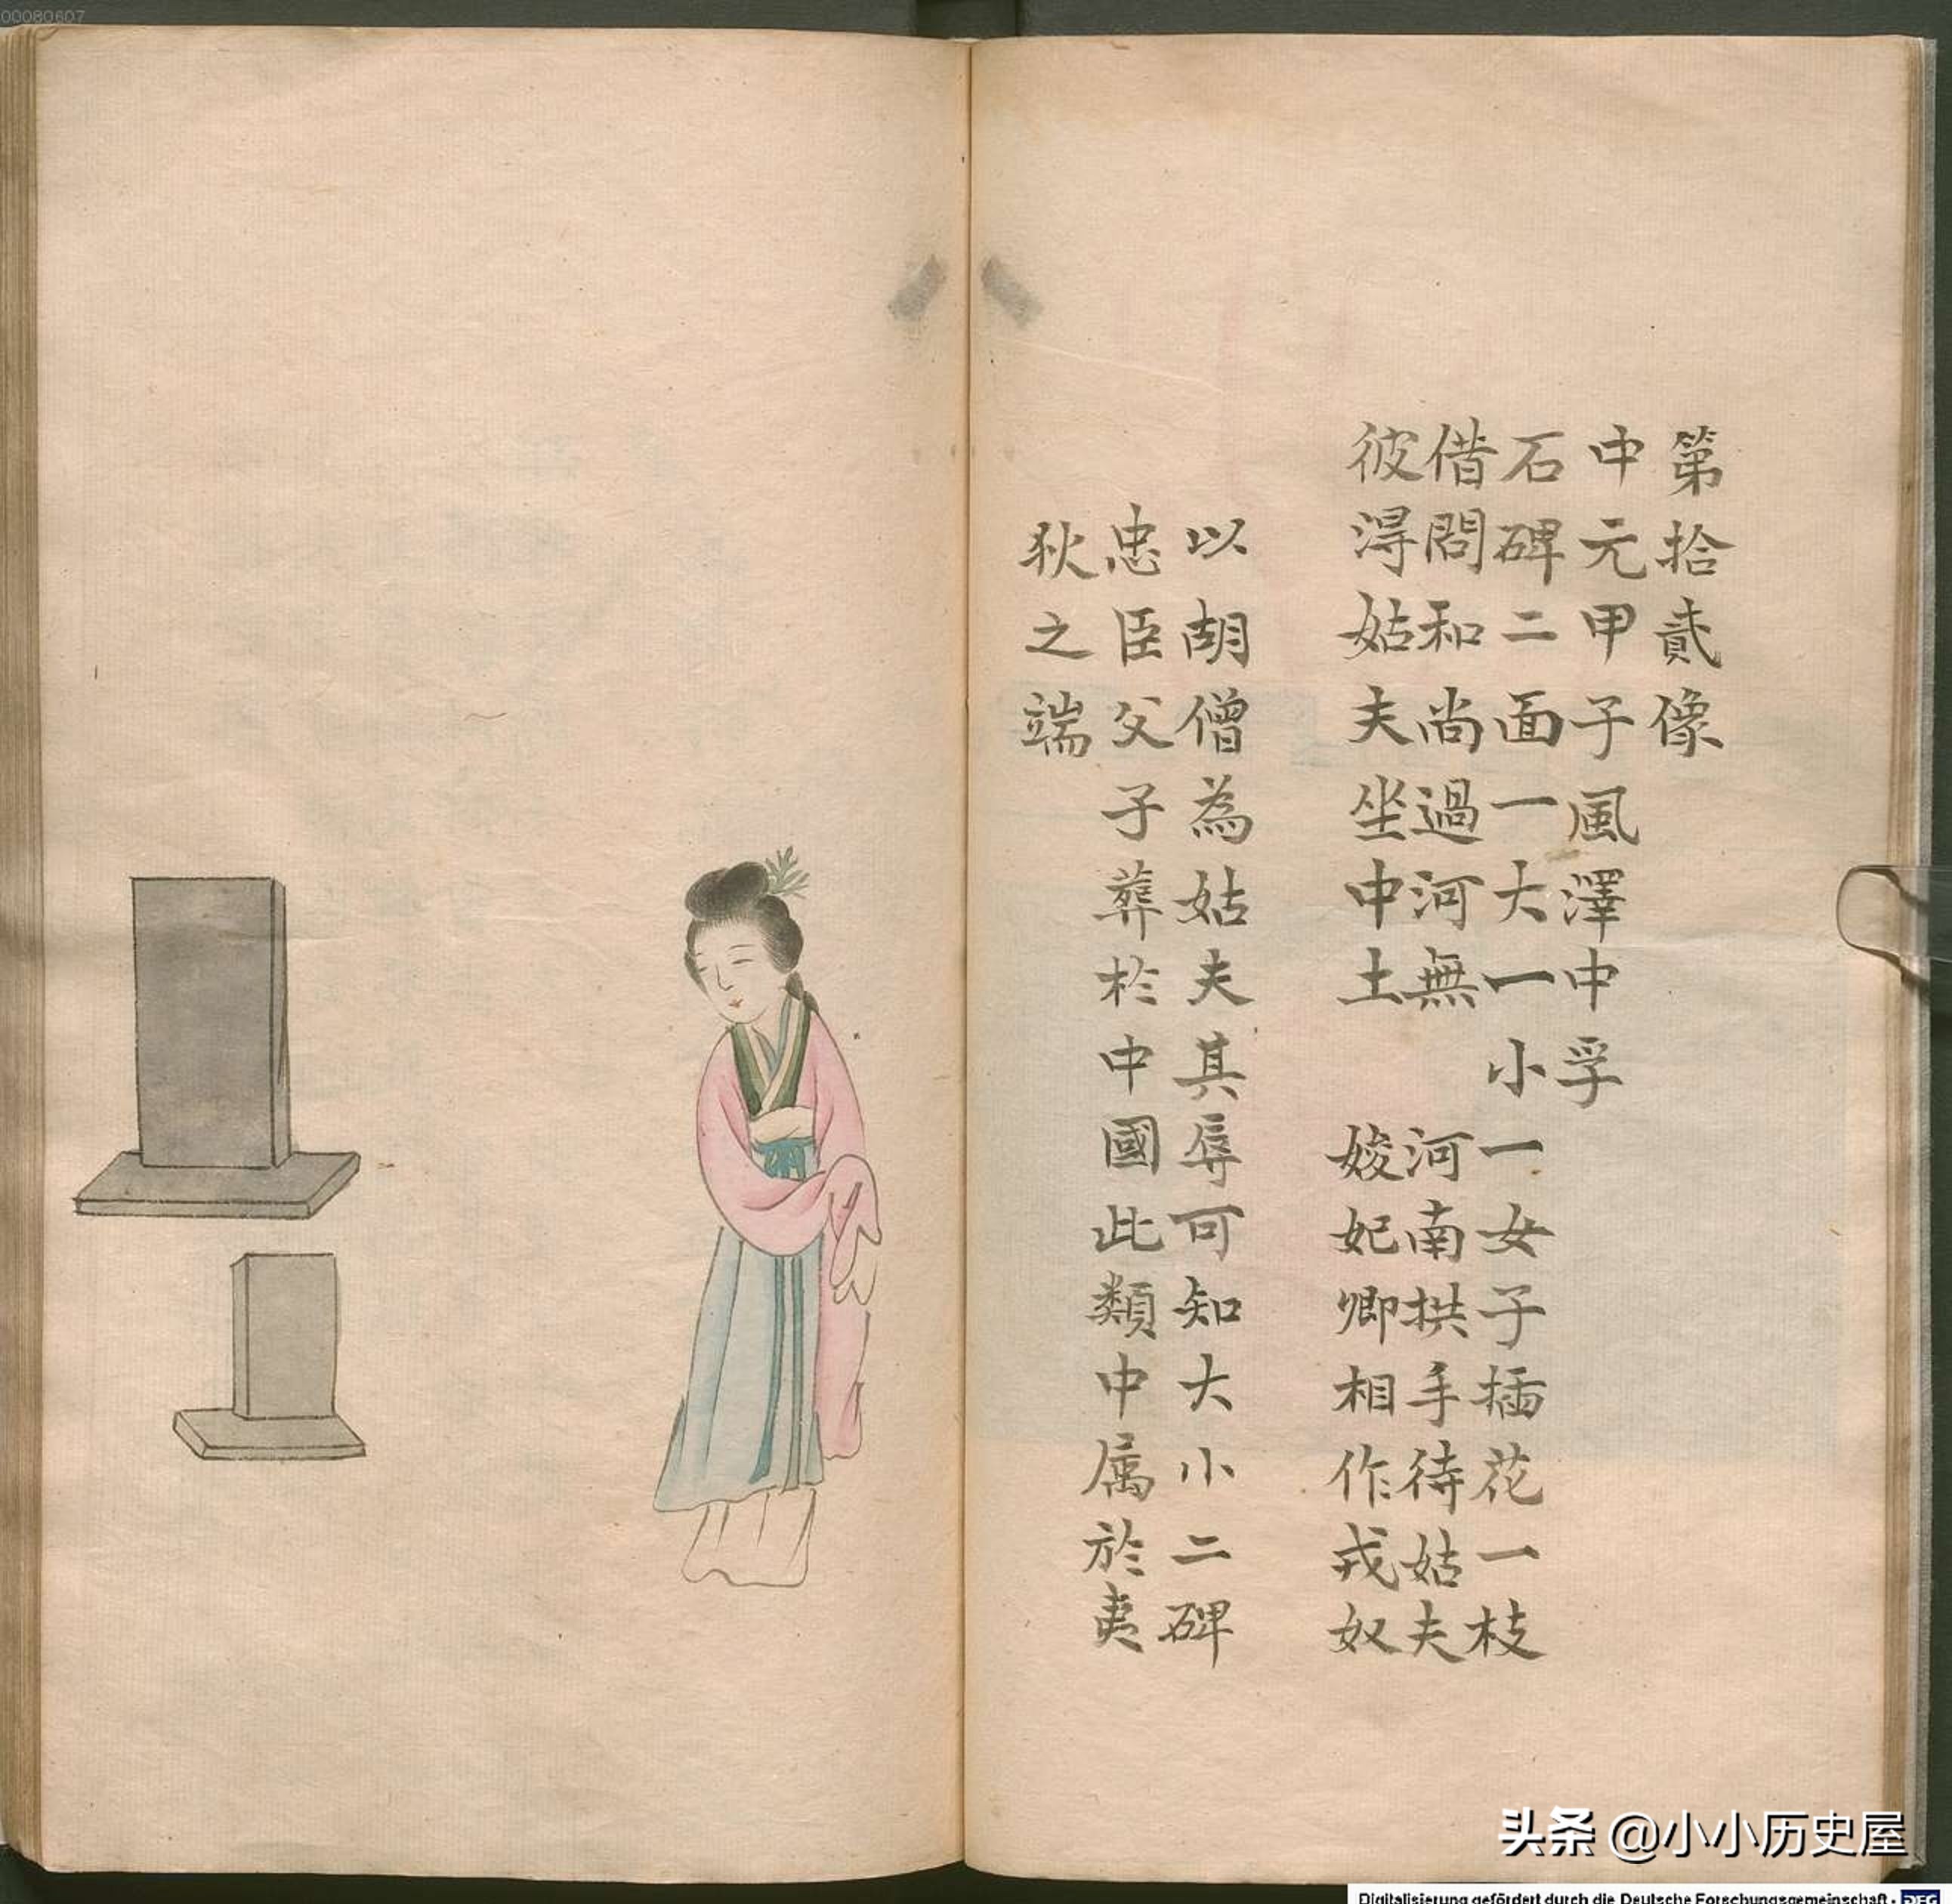 第拾貳像
中元甲子風澤中孚
石碑二面一大一小 一女子插花一枝
借問和尚過河無 河南拱手待姑夫
彼淂姑夫坐中土 婈妃卿相作戎奴
以胡僧為姑夫其辱可知大小二碑
忠臣父子葬於中國此類中属於夷
狄之端
00080607
头条 @小小历史屋
Digitalisierung gefördert durch die Deutsche Forschungsgemeinschaft · DFG